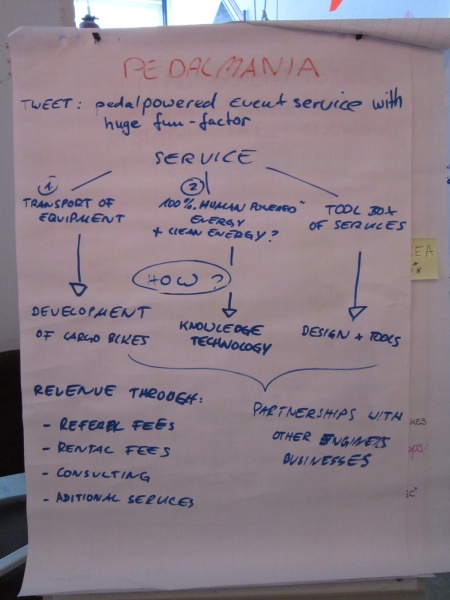 PEDALMANIA
TWEET: pedalpowered event service with
huge fun-factor
SERVICE
1
TRANSPORT OF
EQUIPMENT
2
100% HUMAN POWERED
ENERGY
+ CLEAN ENERGY?
TOOL BOX
OF SERVICES
HOW?
DEVELOPMENT
OF CARGO BIKES
KNOWLEDGE
TECHNOLOGY
DESIGN + TOOLS
REVENUE THROUGH:
- REFERAL FEES
- RENTAL FEES
- CONSULTING
- ADITIONAL SERVICES
PARTNERSHIPS WITH
OTHER ENGINEERS
BUSINESSES